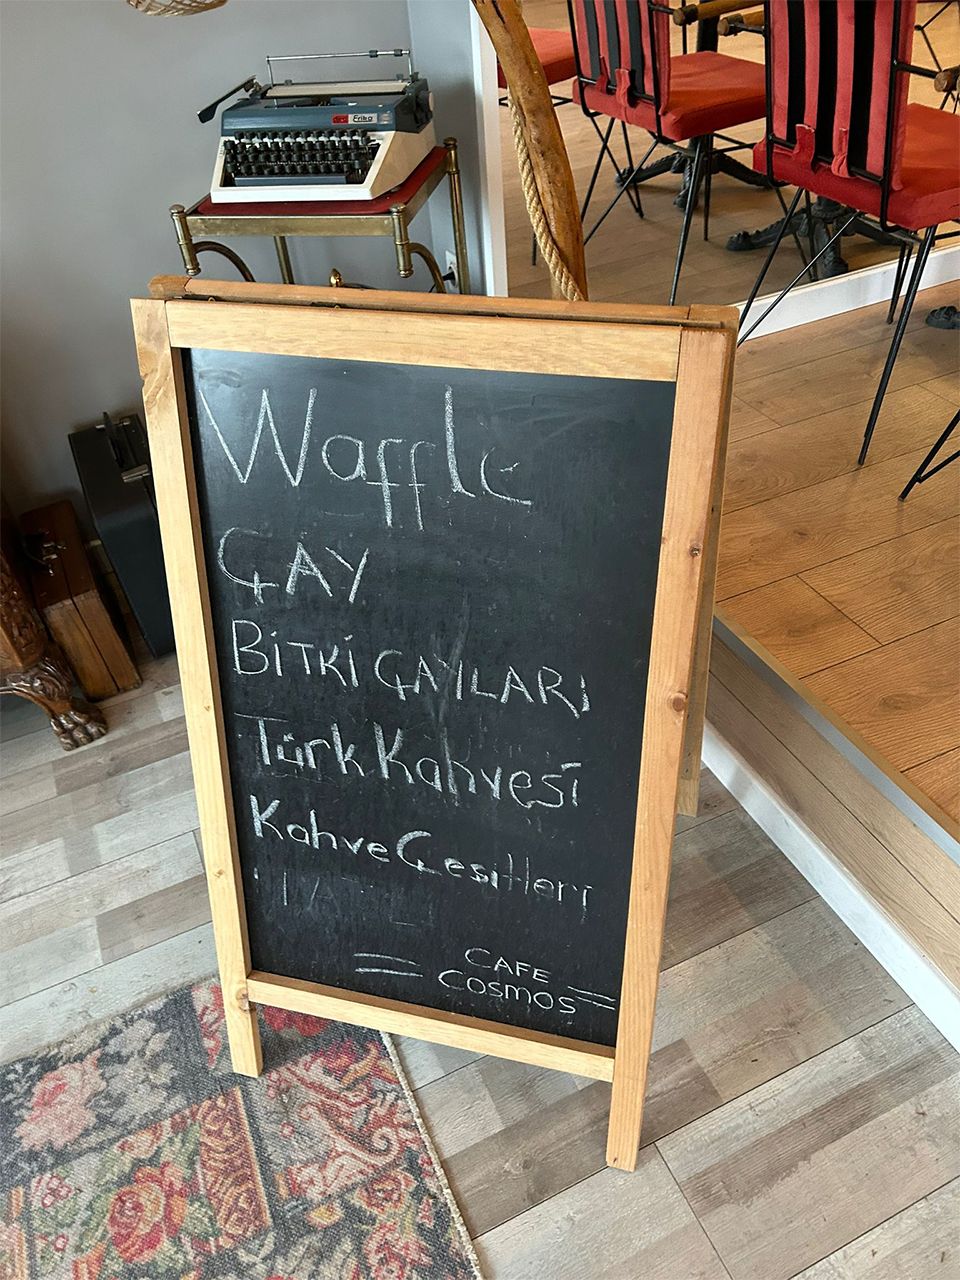 Erika
Waffle
ÇAY
BİTKİ ÇAYLARI
Türk Kahvesi
Kahve Çeşitleri
CAFE
COSMOS